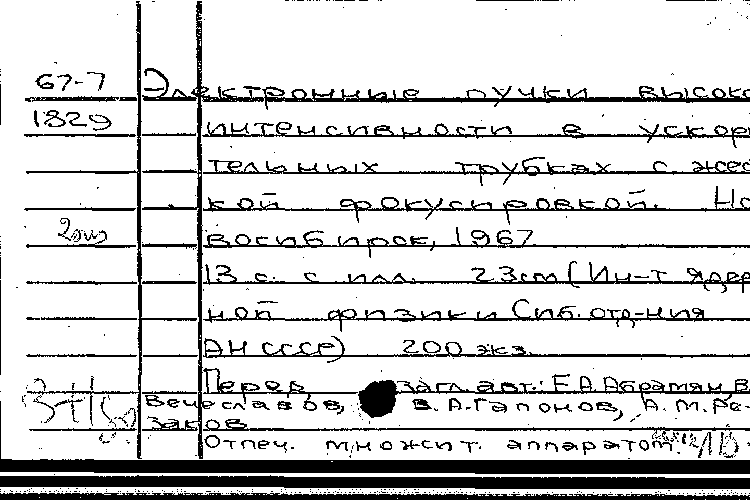 67-7 Электронные пучки высоко
1829 интенсивности в ускори
тельных трубках с жест
кой фокусировкой. Но
2экз восибирск, 1967
13 с. с илл. 23см (Ин-т ядер
ной физики Сиб. отд-ния
АН СССР) 200 экз.
Перед загл. авт.: Е.А. Абрамян, В.
Вечеславов, В.А. Гапонов, А.М. Ре
заков
Отпеч. множит. аппаратом.